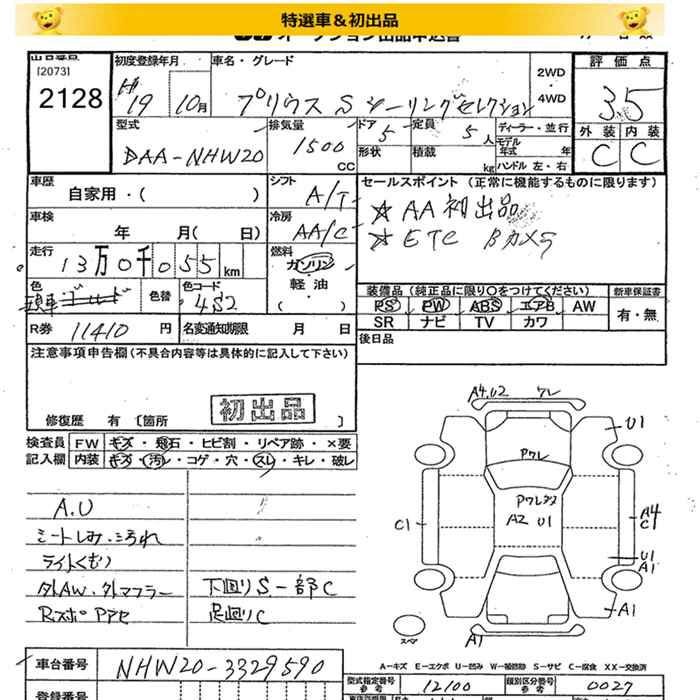 特選車＆初出品
オークション出品申込書
出品番号
[2073]
2128
初度登録年月
H19 10月
車名・グレード
プリウス S ツーリングセレクション
2WD
・
4WD
評価点
3.5
外装 内装
C C
型式
DAA-NHW20
排気量
1500 CC
ドア
5
形状
定員
5人
積載
kg
ディーラー・並行
モデル年式 年
ハンドル 左・右
車歴
自家用・( )
シフト
A/T
セールスポイント (正常に機能するものに限ります)
☆ AA初出品
☆ ETC Bカメラ
車検
年 月( 日)
冷房
AA/C
走行
13万0千055km
燃料
ガソリン
軽油
色
ゴールド
色替
色コード
4S2
装備品 (純正品に限り〇をつけてください)
PS PW ABS エアB AW
SR ナビ TV カワ
新車保証書
有・無
R券 11410 円
名変通知期限 月 日
後日品
注意事項申告欄 (不具合内容等は具体的に記入して下さい)
初出品
修復歴 有 〔箇所 〕
検査員
記入欄
FW キズ・飛石・ヒビ割・リペア跡・×要
内装 キズ・汚レ・コゲ・穴・スレ・キレ・破レ
A.U
シートしみ、こうれ
ライトくもり
外AW・外マフラー
Rスポ Pアセ
下廻りS一部C
足廻りC
A4.U2 ワレ
U1
Pワレ
Pワレ
A2 U1
C1
A4
C
U1
A1
A1
A1
スペア
A－キズ E－エクボ U－凹み W－補修跡 S－サビ C－腐食 XX－交換済
車台番号
NHW20-3329590
型式指定番号
参考
12100
類別区分番号
参考
0027